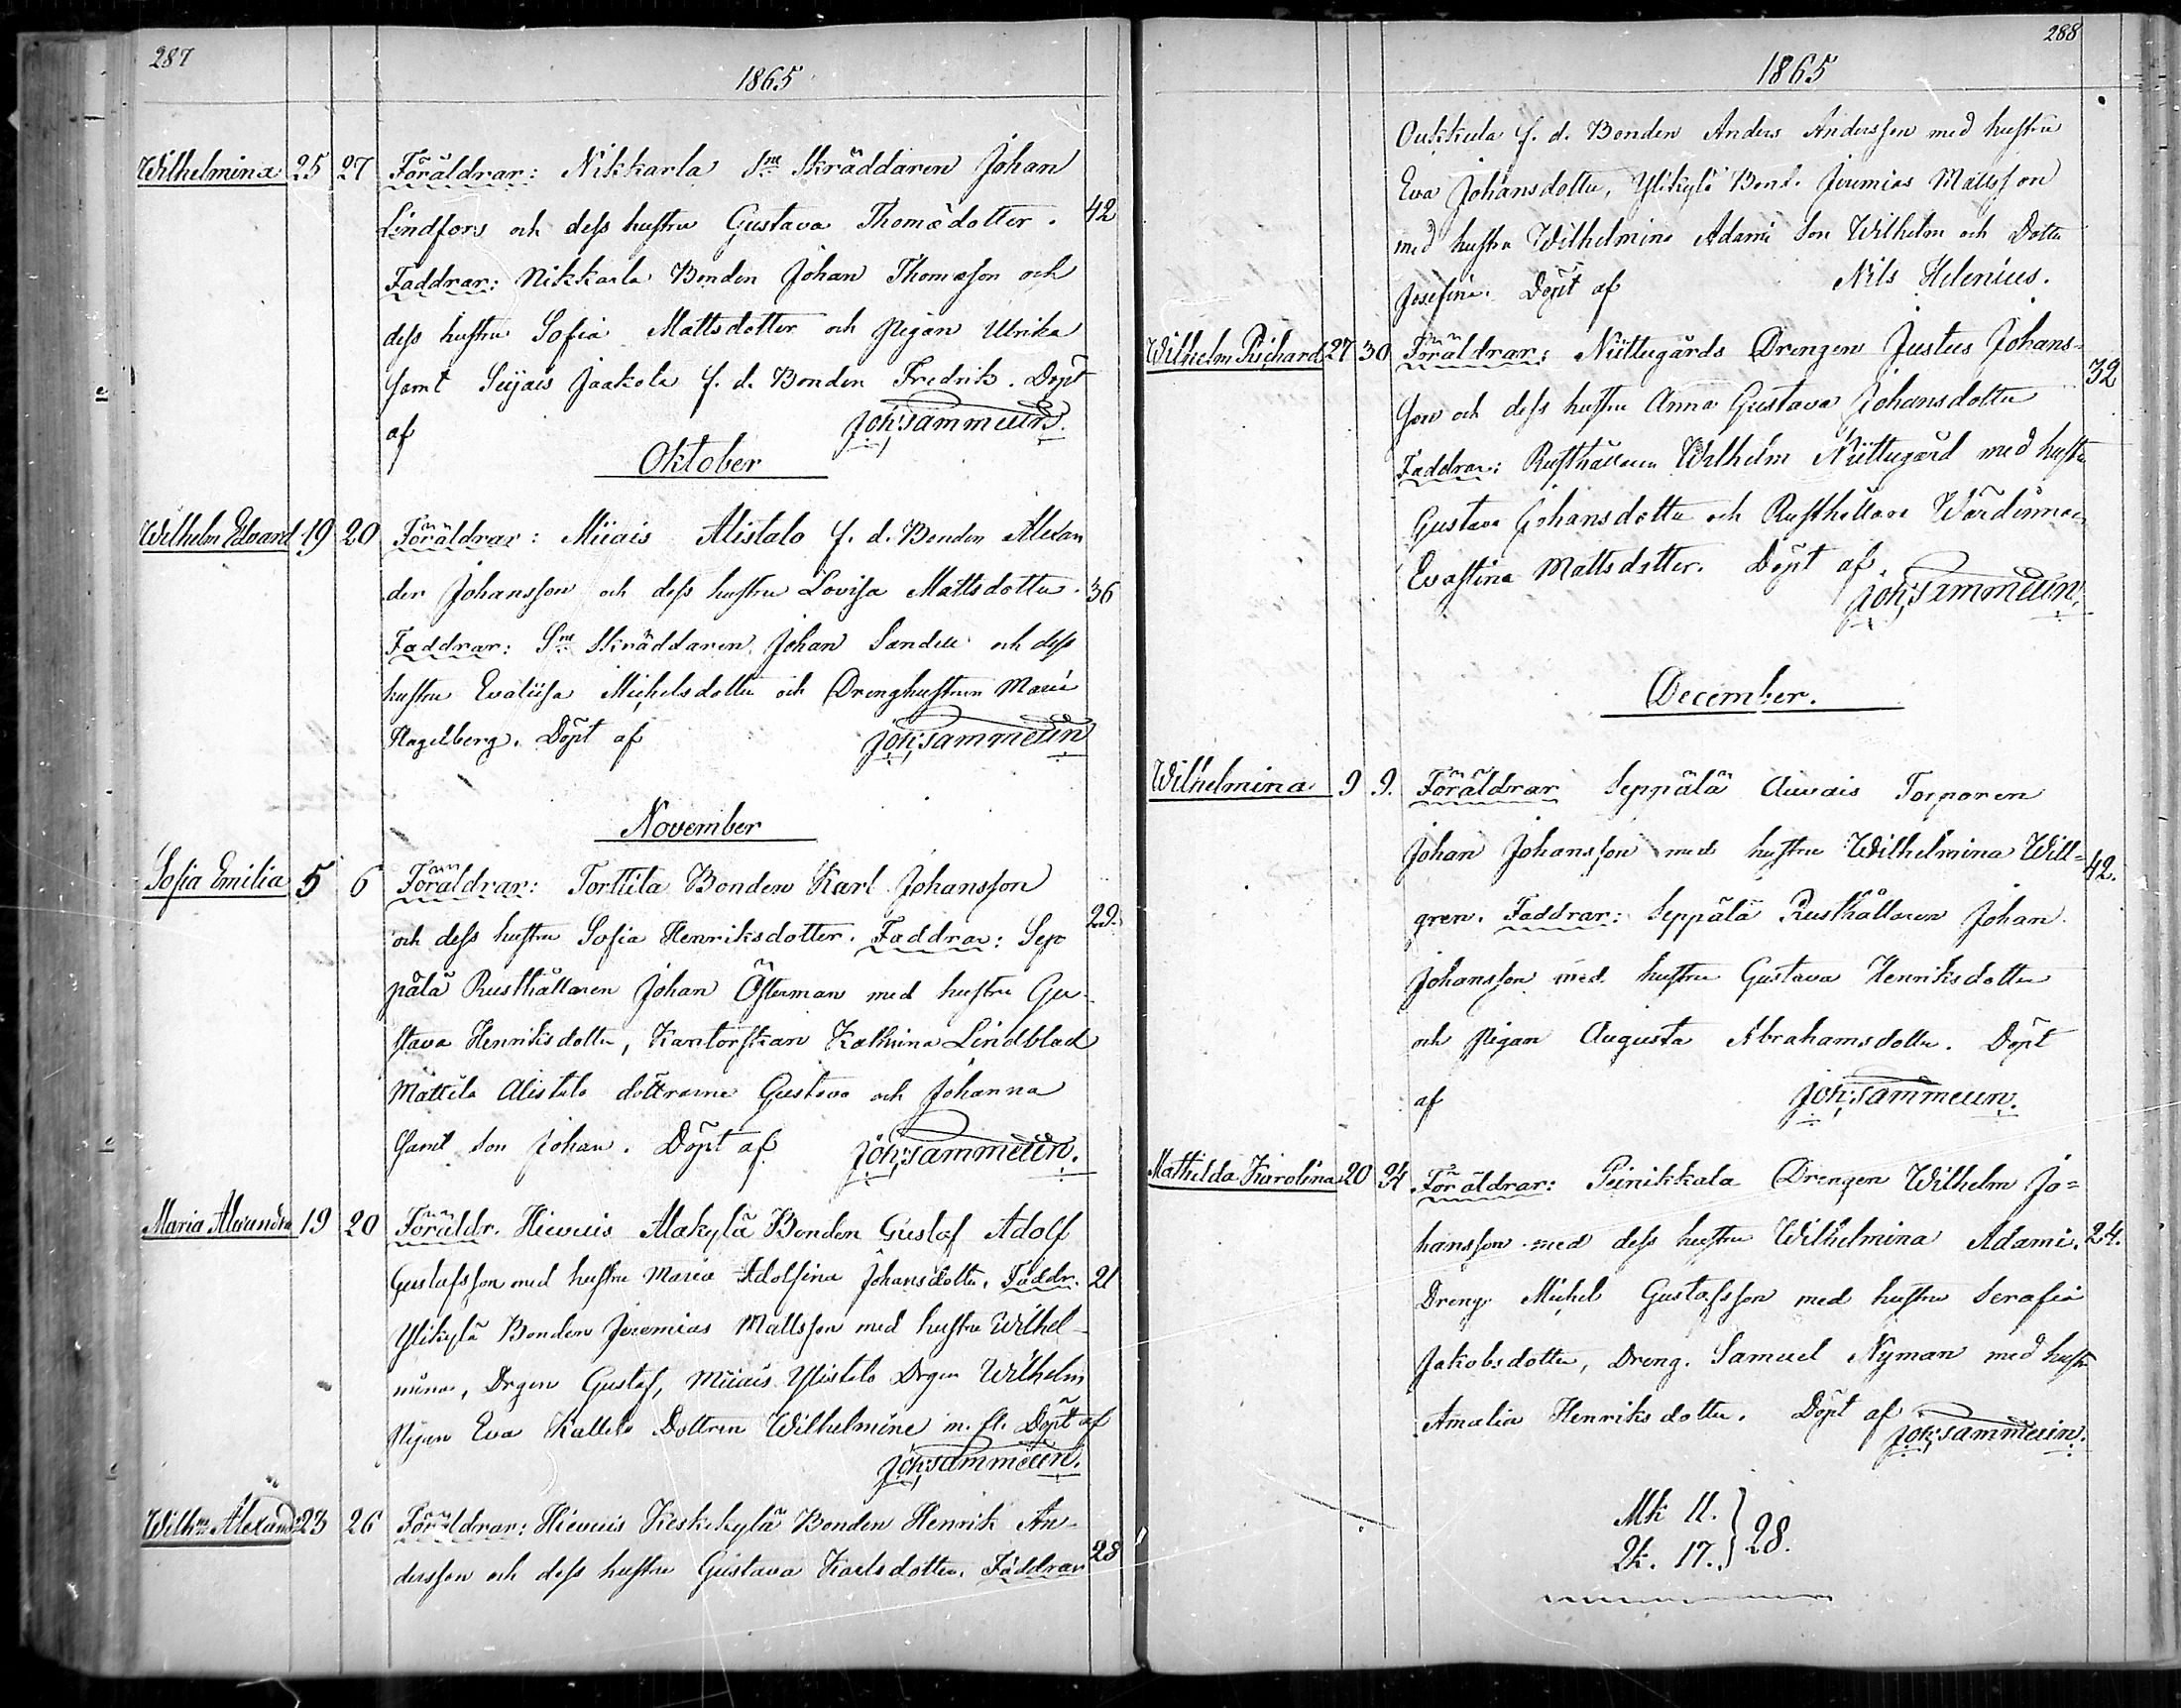 287
1865
Wilhelmina 25 27 Föräldrar: Nikkarla Sn Skräddaren Johan
Lindfors och dess hustru Gustava Thomædotter. 42
Faddrar: Nikkarla Bonden Johan Thomasson och
dess hustru Sofia Mattsdotter och Pigan Ulrika
samt Suјais Jaakola f. d. Bonden Fredrik. Döpt
af Joh. Sammeun.
Oktober
Wilhelm Edvard 19 20 Föräldrar: Miiais Alistalo f. d. Bonden Alexan
der Johansson och dess hustru Lovisa Mattsdotter. 36
Faddrar: Sn Skräddaren Johan Sandell och dess
hustru Evaliisa Michelsdotter och Drenghustrun Maria
Hagelberg. Döpt af Joh. Sammeun
November
Sofia Emilia 5 6 Föräldrar: Torttila Bonden Karl Johansson
och dess hustru Sofia Henriksdotter. Faddrar: Sep 29.
pälä Rusthållaren Johan Österman med hustru Gu-
stava Henriksdotter, Kantorskan Kathrina Lindblad
Mattila Alistalo döttrarne Gustava och Johanna
samt son Johan. Döpt af Joh. Sammeun.
Maria Alexandra 19 20 Föräldr. Hievuis Alakylä Bonden Gustaf Adolf
Gustafsson med hustru Maria Adolfina Johansdotter. Faddr. 21
Ylikylä Bonden Jeremias Mattsson med hustru Wilhel-
mina, Drgen Gustaf, Miiais Ylistalo Drgen Wilhelm
Pigan Eva Kallela Dottren Wilhelmine m. fl. Döpt af
Joh. Sammeun.
Wilhm Alexand. 23 26 Föräldrar: Hievuis Keskikylä Bonden Henrik An-
dersson och dess hustru Gustava Karlsdotter. Faddrar 28
288
1865
Oukkula f. d. Bonden Anders Andersson med hustru
Eva Johansdotter, Ylikylä Bond. Jeremias Mattsson
med hustru Wilhelmina Adami Son Wilhelm och Dotter
Josefina. Döpt af Nils Helenius.
Wilhelm Richard 27 30 Föräldrar: Niittugårds Drengen Justus Johans-
son och dess hustru Anna Gustava Johansdotter 32
Faddrar: Rusthållaren Wilhelm Niittugård med hustru
Gustava Johansdotter och Rusthållare Wärdinnan
Evastina Mattsdotter. Döpt af
Joh. Sammeun.
December.
Wilhelmina 9 9. Föräldrar Seppälä Auvais Torparen
Johan Johansson med hustru Wilhelmina Will- 42.
gren. Faddrar: Seppälä Rusthållaren Johan
Johansson med hustru Gustava Henriksdotter
och Pigan Augusta Abrahamsdotter. Döpt
af Joh. Sammeun.
Mathilda Karolina 20 24 Föräldrar: Peinikkala Drengen Wilhelm Jo=
hansson med dess hustru Wilhelmina Adami. 24.
Dreng. Michel Gustafsson med hustru Serafia
Jakobsdotter, Dreng. Samuel Nyman med hustru
Amalia Henriksdotter. Döpt af
Joh. Sammeun.
Mk 11. } 28.
Qk. 17.